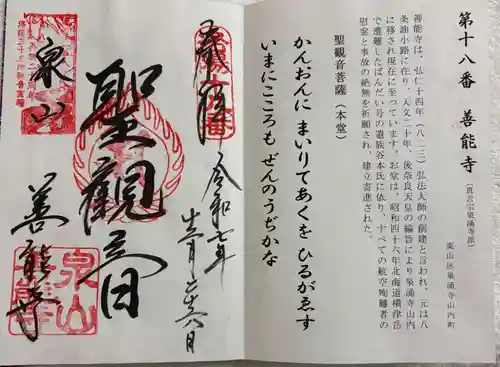 第十八番 善能寺
(真言宗泉涌寺派)
東山区泉涌寺山内町
善能寺は、弘仁十四年（八二三）弘法大師の創建と言われ、元は八
条油小路に在り、天文二十年、後奈良天皇の綸旨により泉涌寺山内
に移され現在に至っています。お堂は、昭和四十六年北海道横津岳
で遭難したばんだい号の遺族谷本氏に依り、すべての航空殉難者の
慰霊と事故の絶無を祈願され、建立寄進された。
聖観音菩薩（本堂）
かんおんに まいりてあくを ひるがゑす
いまにこころも ぜんのうぢかな
奉拝
令和七年
十二月二十六日
聖観音
泉山
善能寺
泉山